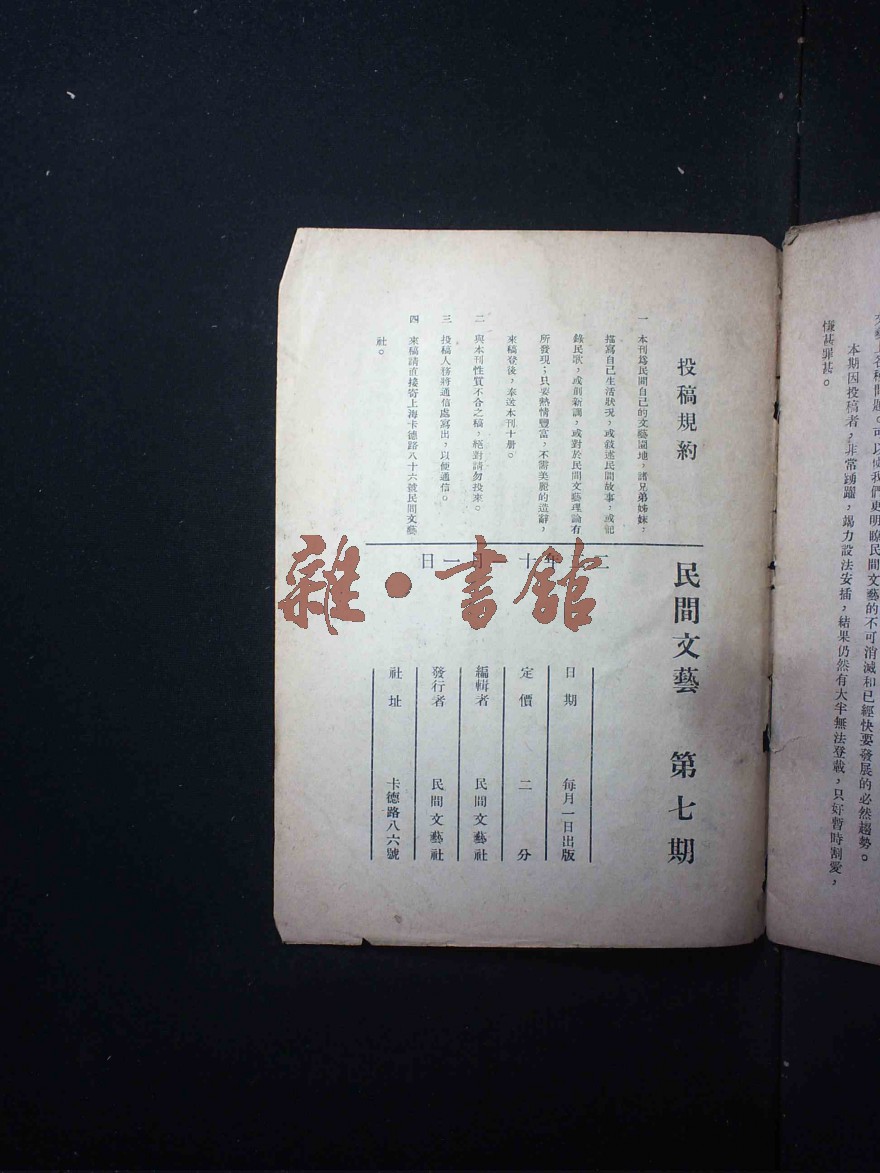 文藝上各種問題。可以使我們更明瞭民間文藝的不可消滅和已經快要發展的必然趨勢。
本期因投稿者，非常踴躍，竭力設法安插，結果仍然有大半無法登載，只好暫時割愛，
慊甚罪甚。
投稿規約
一 本刊爲民間自己的文藝園地，諸兄弟姊妹，
描寫自己生活狀況，或敍述民間故事，或記
錄民歌，或創新調，或對於民間文藝理論有
所發現；只要熱情豐富，不需美麗的造辭，
來稿登後，奉送本刊十册。
二 與本刊性質不合之稿，絕對請勿投來。
三 投稿人務將通信處寫出，以便通信。
四 來稿請直接寄上海卡德路八十六號民間文藝
社。
民間文藝 第七期
年十 月一日
日期 每月一日出版
定價 二分
編輯者 民間文藝社
發行者 民間文藝社
社址 卡德路八六號
雜·書館